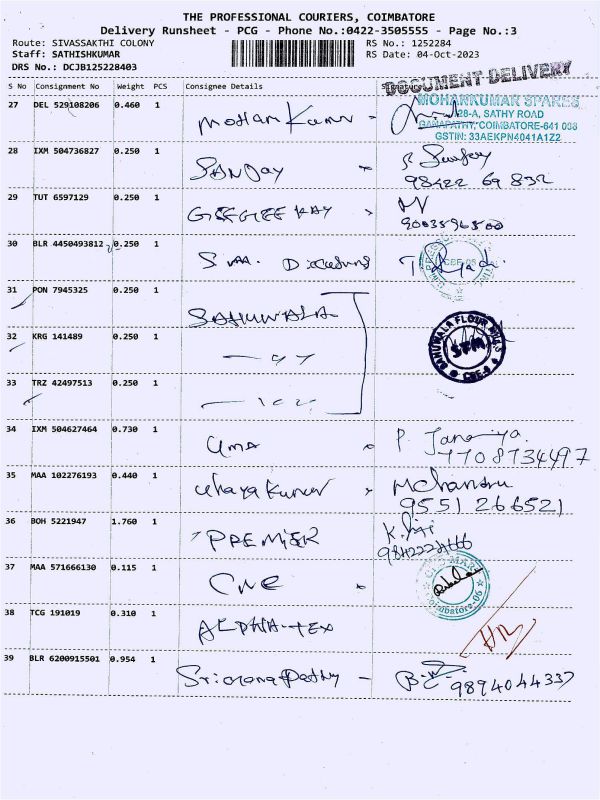 THE PROFESSIONAL COURIERS, COIMBATORE
Delivery Runsheet - PCG - Phone No.:0422-3505555 - Page No.:3
Route: SIVASSAKTHI COLONY
RS No.: 1252284
Staff: SATHISHKUMAR
RS Date: 04-Oct-2023
DRS No.: DCJB125228403
DOCUMENT DELIVERY
S No Consignment No Weight PCS Consignee Details
MOHANKUMAR SPARES
28-A, SATHY ROAD
GANAPATHY, COIMBATORE-641 006
GSTIN: 33AEKPN4041A1Z2
27 DEL 529108206 0.460 1 Mohan Kumar -
28 IXM 504736827 0.250 1 SANJAY
98422 69 832
29 TUT 6597129 0.250 1 GEEGEE KAY
9003596500
30 BLR 4450493812 0.250 1
31 PON 7945325 0.250 1 SAHUWALA
SAHUWALA FLOUR MILLS
SFM
CBE-6
32 KRG 141489 0.250 1
33 TRZ 42497513 0.250 1
34 IXM 504627464 0.730 1 UMA
7708734497
35 MAA 102276193 0.440 1 Uhayakumar
9551 266521
36 BOH 5221947 1.760 1 PREMIER
37 MAA 571666130 0.115 1 CNC
Coimbatore-06
38 TCG 191019 0.310 1 ALPHA-TEX
39 BLR 6200915501 0.954 1
9894044337